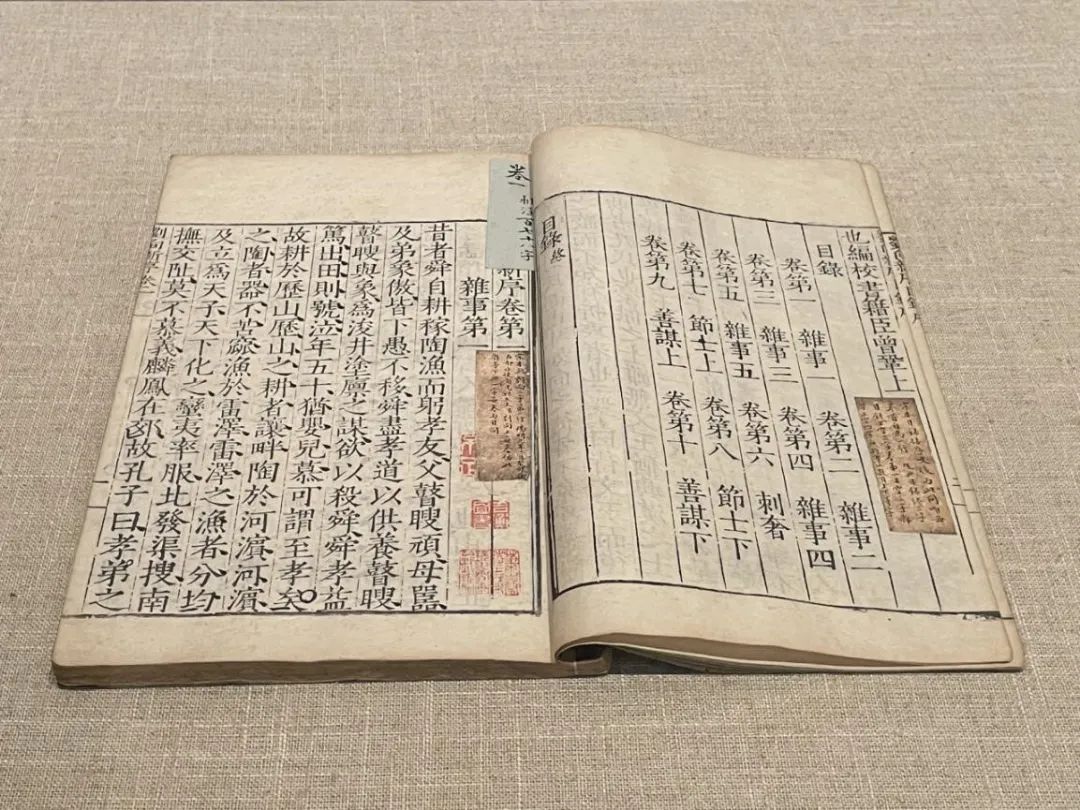 也編校書籍臣曾鞏上
目錄
卷第一 雜事一 卷第二 雜事二
卷第三 雜事三 卷第四 雜事四
卷第五 雜事五 卷第六 刺奢
卷第七 節士上 卷第八 節士下
卷第九 善謀上 卷第十 善謀下
目錄終
卷一
新序卷第一
雜事第一
昔者舜自耕稼陶漁而躬孝友父瞽瞍頑母嚚
及弟象傲皆下愚不移舜盡孝道以供養瞽瞍
瞽瞍與象為浚井塗廩之謀欲以殺舜舜孝益
篤出田則號泣年五十猶嬰兒慕可謂至孝矣
故耕於歷山歷山之耕者讓畔陶於河濱河濱
之陶者器不苦窳漁於雷澤雷澤之漁者分均
及立為天子天下化之蠻夷率服北發渠搜南
撫交阯莫不慕義麟鳳在郊故孔子曰孝弟之
劉向新序卷一